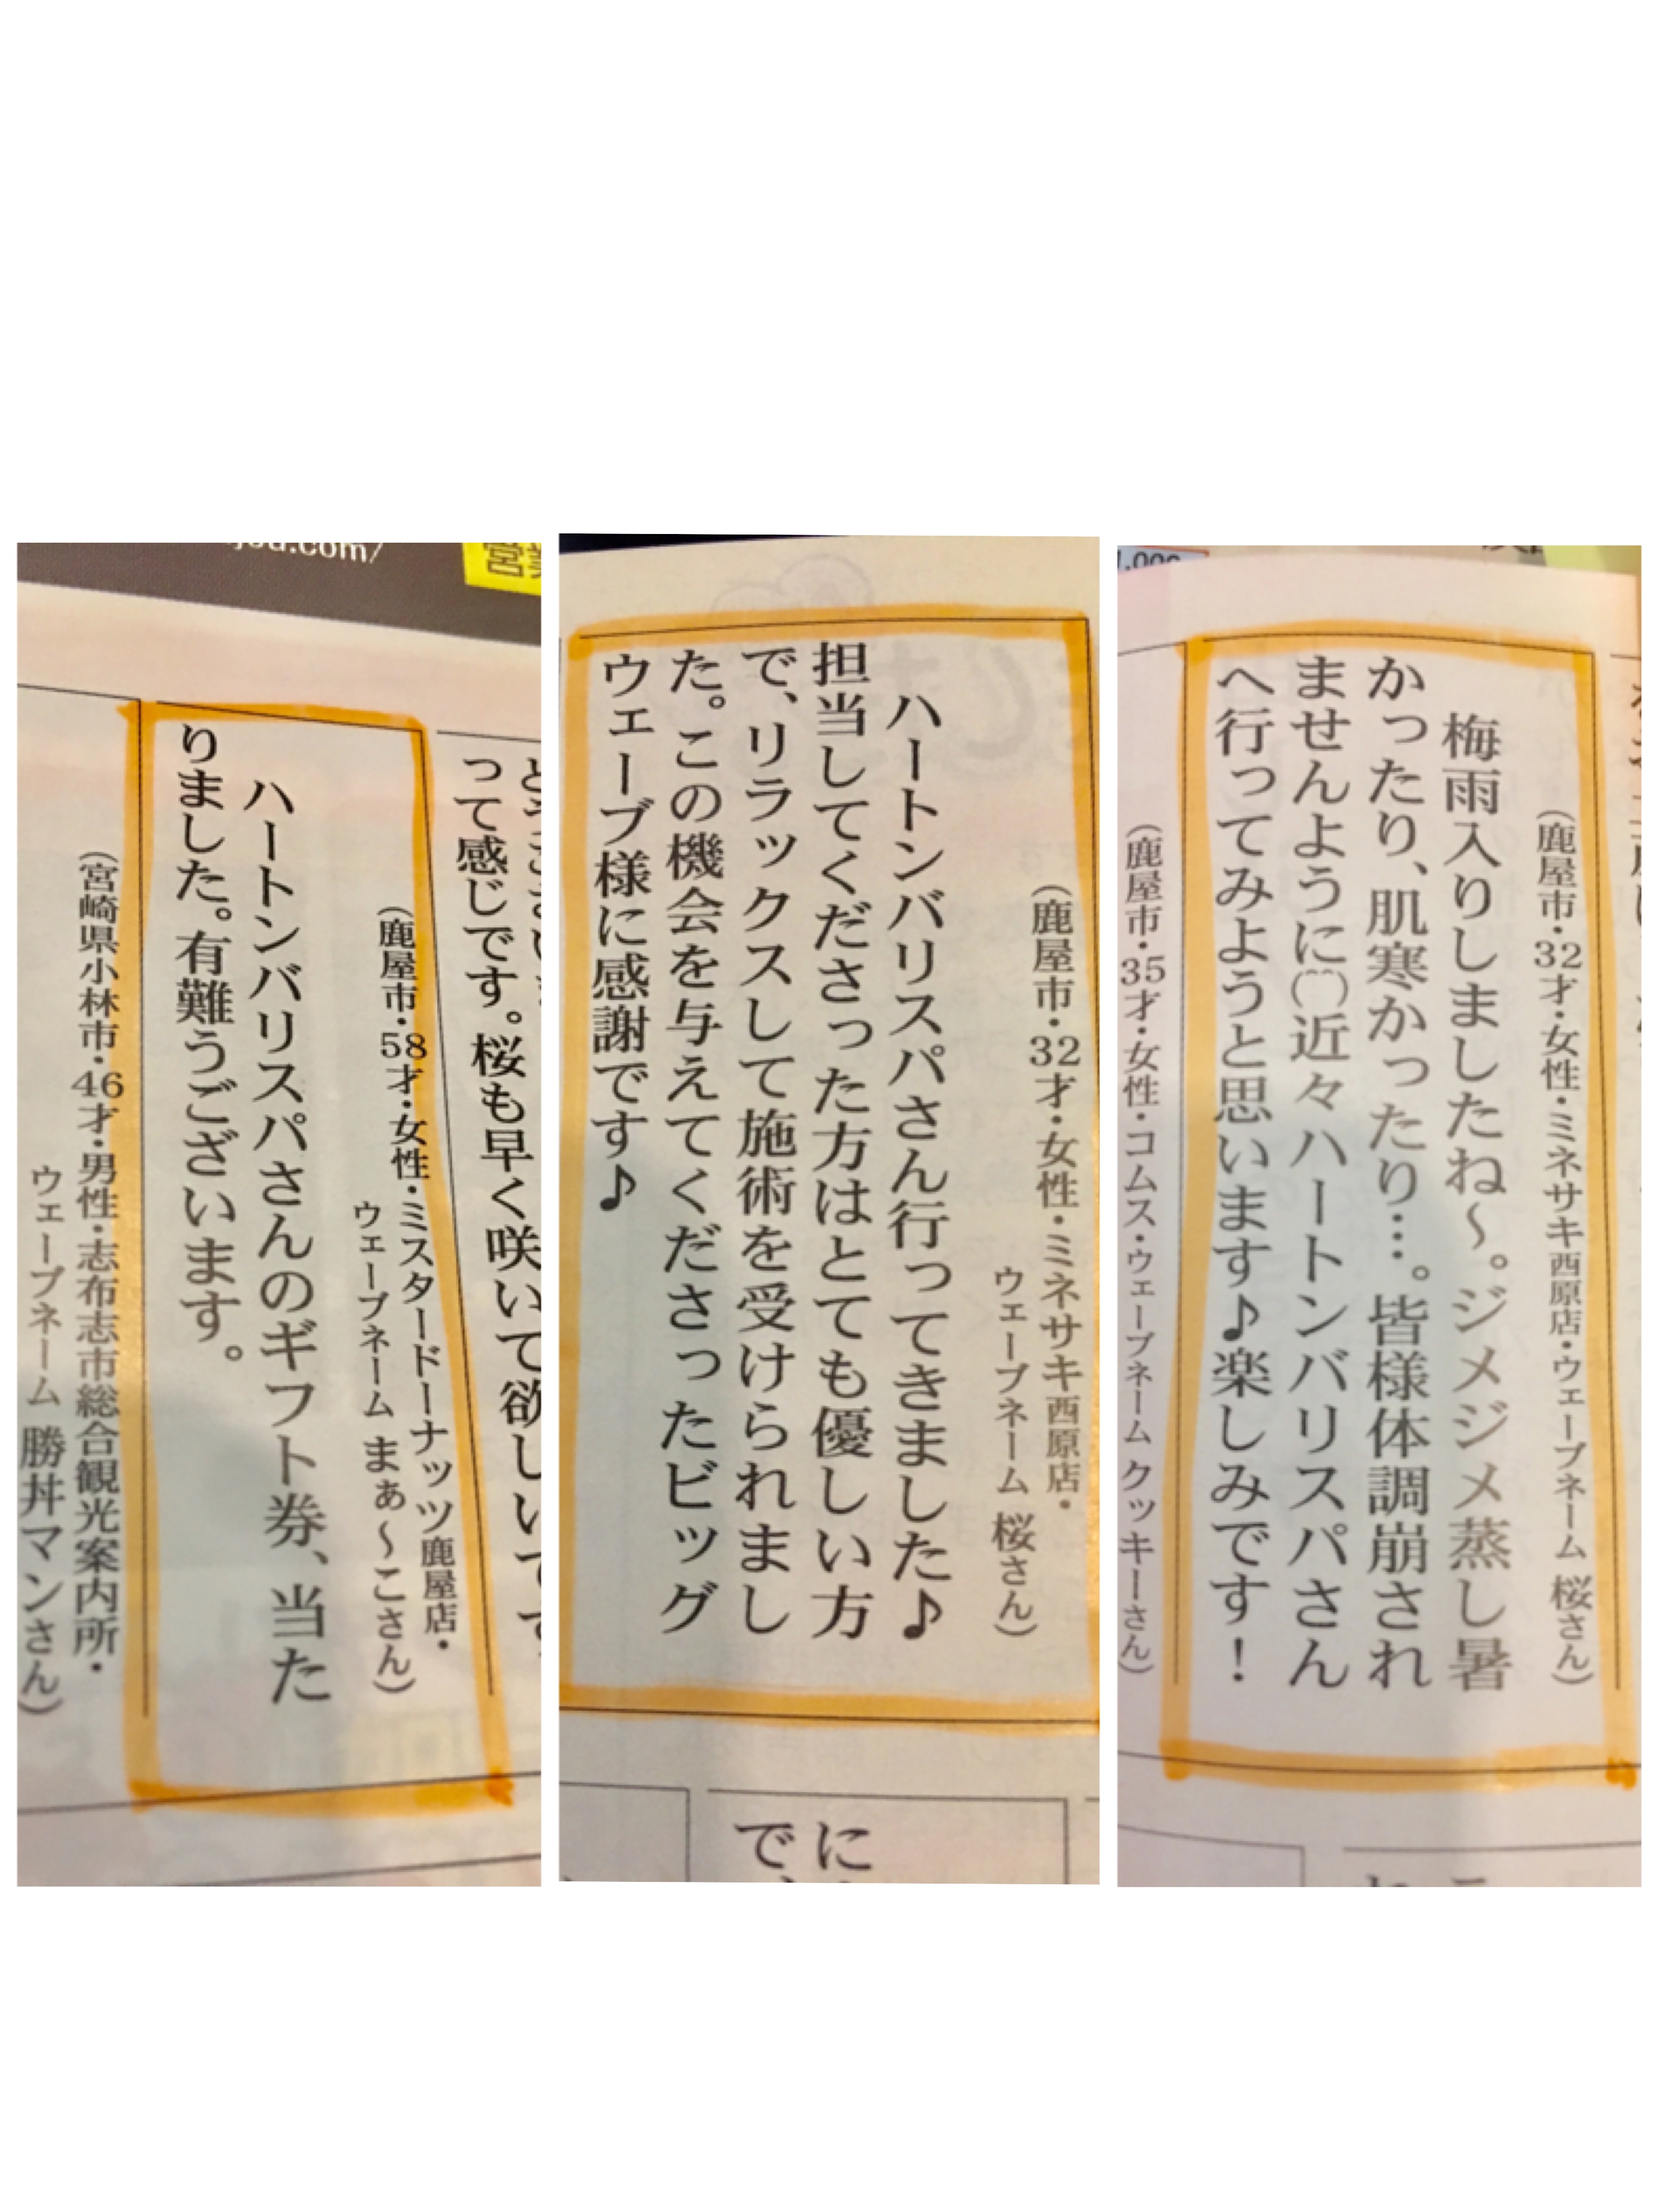 jou.com/
営業
って感じです。桜も早く咲いて欲しいで
(鹿屋市・58才・女性・ミスタードーナッツ鹿屋店・
ウェーブネーム まぁ〜こさん)
ハートンバリスパさんのギフト券、当た
りました。有難うございます。
(宮崎県小林市・46才・男性・志布志市総合観光案内所・
ウェーブネーム 勝丼マンさん)
(鹿屋市・32才・女性・ミネサキ西原店・
ウェーブネーム 桜さん)
ハートンバリスパさん行ってきました♪
担当してくださった方はとても優しい方
で、リラックスして施術を受けられまし
た。この機会を与えてくださったビッグ
ウェーブ様に感謝です♪
に
で
(鹿屋市・32才・女性・ミネサキ西原店・ウェーブネーム 桜さん)
梅雨入りしましたね〜。ジメジメ蒸し暑
かったり、肌寒かったり…。皆様体調崩され
ませんように(^^)近々ハートンバリスパさん
へ行ってみようと思います♪楽しみです！
(鹿屋市・35才・女性・コムス・ウェーブネーム クッキーさん)